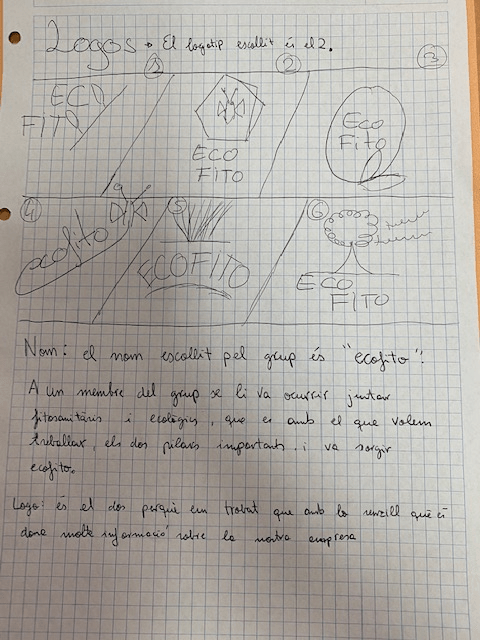 Logos → El logotip escollit és el 2.
1 2 3
ECO
FITO
ECO
FITO
Eco
Fito
4 5 6
ecofito
ECOFITO
ECO
FITO
Nom: el nom escollit pel grup és "ecofito":
A un membre del grup se li va ocurrir juntar
fitosanitaris i ecològics, que es amb el que volem
treballar, els dos pilars importants, i va sorgir
ecofito.
Logo: és el dos perquè em trobat que amb lo senzill que és
dona molta informació sobre la nostra empresa